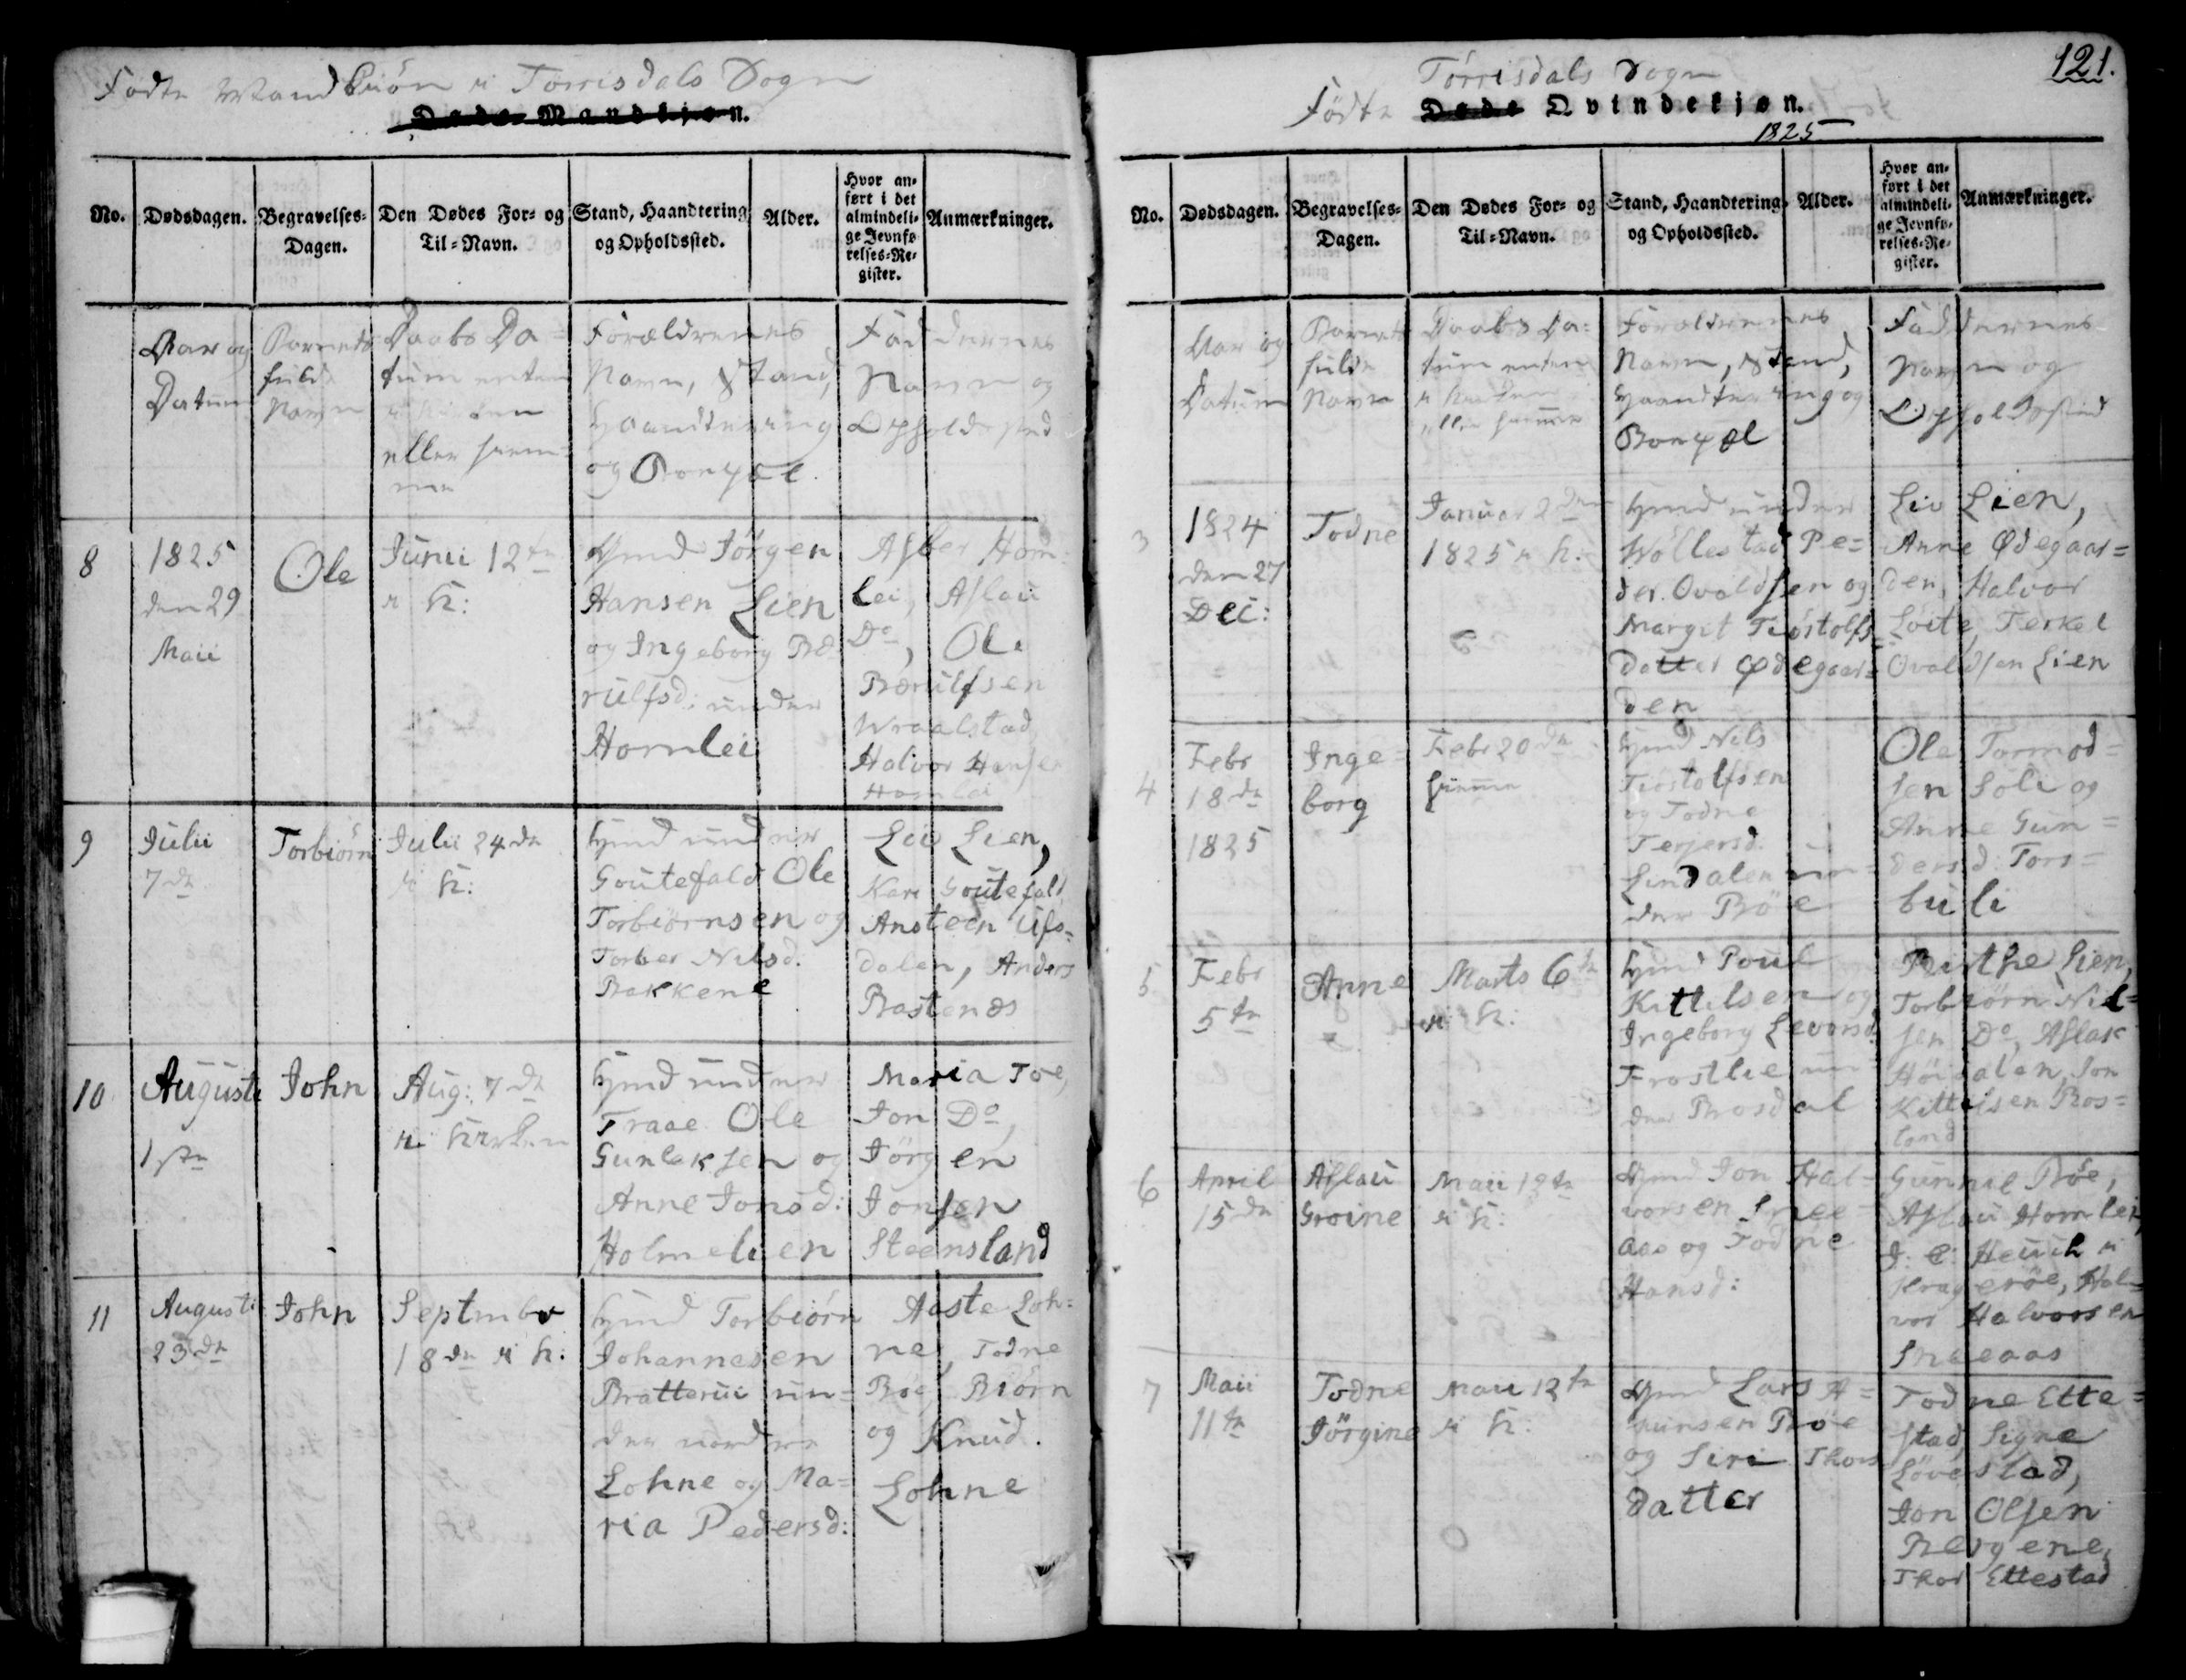 Fødte Mandkiøn i Tørrisdals Sogn
Døde Mandkjøn.
No.
Dødsdagen.
Begravelses-
Dagen.
Den Dødes For- og
Til-Navn.
Stand, Haandtering
og Opholdssted.
Alder.
Hvor an-
ført i det
almindeli-
ge Jevnfø-
relses-Re-
gister.
Anmærkninger.
Aar og
Datum
Barnets
fulde
Navn
Daabs Da-
tum enten
i Kirken
eller hiem-
me
Forældrenes
Navn, Stand,
Haandtering
og Bopæl.
Faddernes
Navn og
Opholdssted
8
1825
den 29
Maii
Ole
Junii 12te
i K:
Gmd Jørgen
Hansen Lien
og Ingeborg Bæ-
rulfsd: under
Homlei
Asber Hom-
lei, Aslau
Do, Ole
Bærulfsen
Wraalstad
Halvor Hansen
Homlei
9
Julii
7de
Torbiørn
Julii 24de
i K:
Hmd under
Goutefald Ole
Torbiørnsen og
Torber Nilsd.
Bakkene
Liv Lien,
Kari Goutefald,
Ansteen Ufs-
dalen, Anders
Bastenæs
10
Augusti
1ste
John
Aug: 7de
i Kirken
Hmd under
Traae Ole
Gunlaksen og
Anne Jonsd:
Holmelien
Maria Toe,
Jon Do,
Jörgen
Jonsen
Steensland
11
Augusti
23de
John
Septmbr
18de i K:
Hmd Torbiørn
Johannesen
Bratterui un-
der nordre
Lohne og Ma-
ria Pedersd:
Aaste Loh-
ne, Todne
Bøe, Biørn
og Knud.
Lohne
121.
Tørrisdals Sogn
Fødte Døde Qvindekjøn.
1825
No.
Dødsdagen.
Begravelses-
Dagen.
Den Dødes For- og
Til-Navn.
Stand, Haandtering
og Opholdssted.
Alder.
Hvor an-
ført i det
almindeli-
ge Jevnfø-
relses-Re-
gister.
Anmærkninger.
Aar og
Datum
Barnets
fulde
Navn
Daabs Da-
tum enten
i Kirken
eller hiemme
Forældrenes
Navn, Stand,
Haandtering og
Bopæl
Faddernes
Navn og
Opholdssted
3
1824
den 27
Dec:
Todne
Januar 2den
1825 i K:
Hmd under
Wöllestad Pe-
der Ovaldsen og
Margit Tiöstolfs-
datter Ødegaar-
den
Liv Lien,
Anne Ødegaar-
den, Halvor
Löite, Terkel
Ovaldsen Lien
4
Febr
18de
1825
Inge-
borg
Febr 20de
hiemme
Hmd Nils
Tiöstolfsen
og Todne
Terjersd.
Lindalen un-
der Böe
Ole Tormod-
sen Soli og
Anne Gun-
dersd. Tors-
buli
5
Febr
5te
Anne
Marts 6te
i K:
Hmd Poul
Kittilsen og
Ingeborg Levorsd.
Frostlie un-
der Bosdal
Birthe Lien,
Torbiørn Nil-
sen Do, Aslak
Höidalen, Jon
Kittelsen Ros-
land
6
April
15de
Aslau
Groine
Maii 12te
i K:
Gmd Jon Hal-
vorsen Snee-
aas og Todne
Hansd:
Gunnil Bøe,
Aslau Homlei,
J. C. Heuch i
Krageröe, Hal-
vor Halvorsen
Sneeaas
7
Maii
11te
Todne
Jörgine
Maii 12te
i K:
Gmd Lars A-
munsen Bøe
og Siri Thors
datter
Todne Ette-
stad, Signe
Løvestad,
Jon Olsen
Bergene,
Thor Ettestad